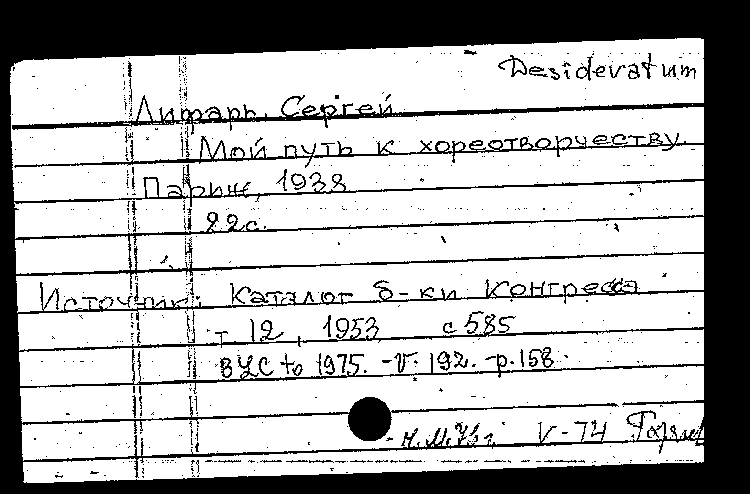 Desideratum
Лифарь, Сергей
Мой путь к хореотворчеству
Париж, 1938
22с.
Источник: Каталог б-ки Конгресса
т 12, 1953 с 585
BLC to 1975. -V. 192. -p. 158.
V-74